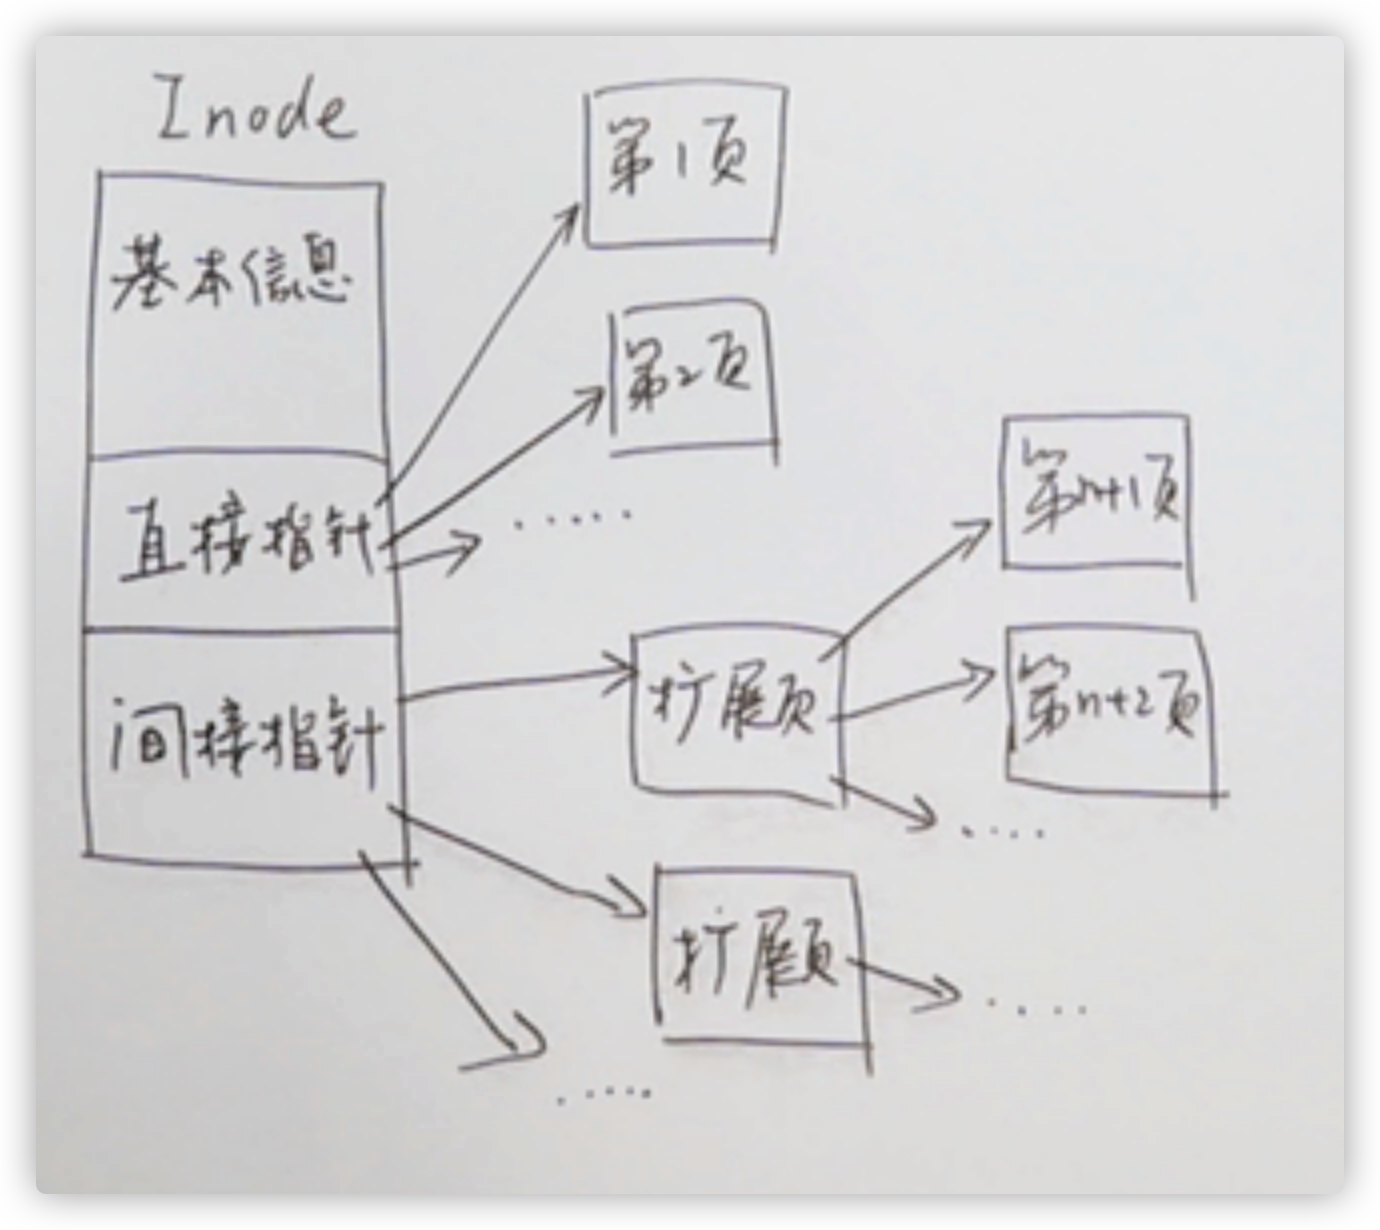 Inode
基本信息
直接指针
间接指针
第1页
第2页
.....
扩展页
扩展页
....
第n+1页
第n+2页
....
....